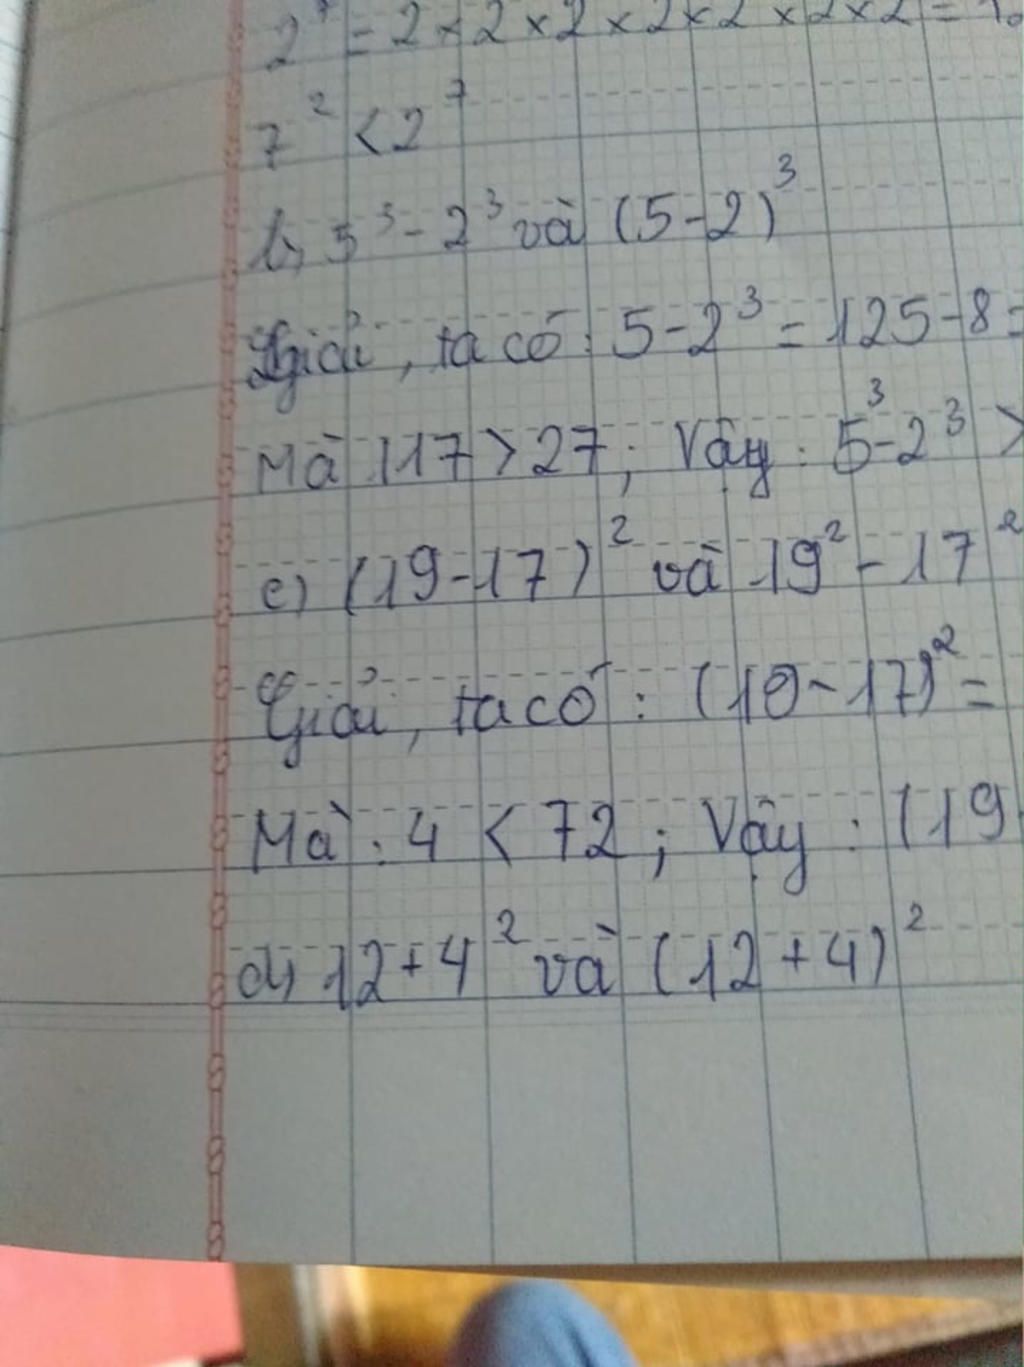 2⁷ = 2 × 2 × 2 × 2 × 2 × 2 × 2 =
7² < 2⁷
b, 5³ - 2³ và (5-2)³
Giải, ta có: 5 - 2³ = 125 - 8 =
Mà 117 > 27; Vậy: 5³ - 2³ >
c) (19-17)² và 19² - 17²
Giải, ta có: (19 - 17)² =
Mà: 4 < 72; Vậy: (19
d, 12 + 4² và (12 + 4)²